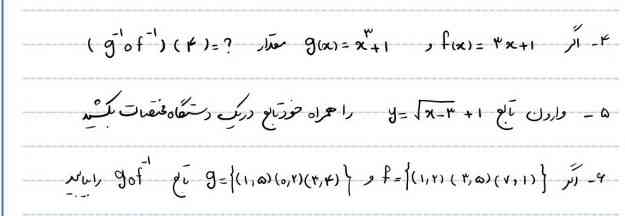 ۴- اگر f(x) = ۳x+۱ و g(x) = x^۳+۱ مقدار (g⁻¹of⁻¹)(۴) = ?
۵- وارون تابع y = √(x-۳) + ۱ را همراه خود تابع در یک دستگاه مختصات بکشید
۶- اگر f = {(۱,۲) (۳,۵) (۷,۱)} و g = {(۱,۵) (۰,۲) (۳,۴)} تابع gof⁻¹ را بیابید